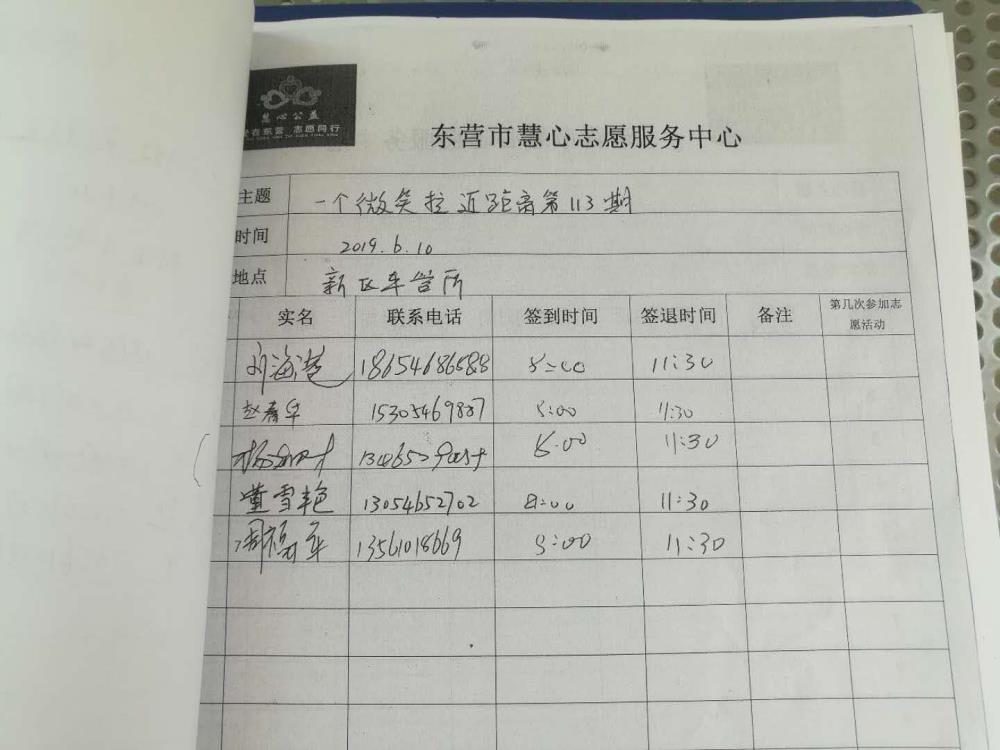 慧心公益
在东营 志愿同行
东营市慧心志愿服务中心
主题 一个微笑拉近距离第113期
时间 2019.6.10
地点 新区车管所
实名 联系电话 签到时间 签退时间 备注 第几次参加志愿活动
刘海港 18654686588 8:00 11:30
赵春华 15305469887 8:00 11:30
8:00 11:30
董雪艳 13054652702 8:00 11:30
周福军 13561018669 8:00 11:30